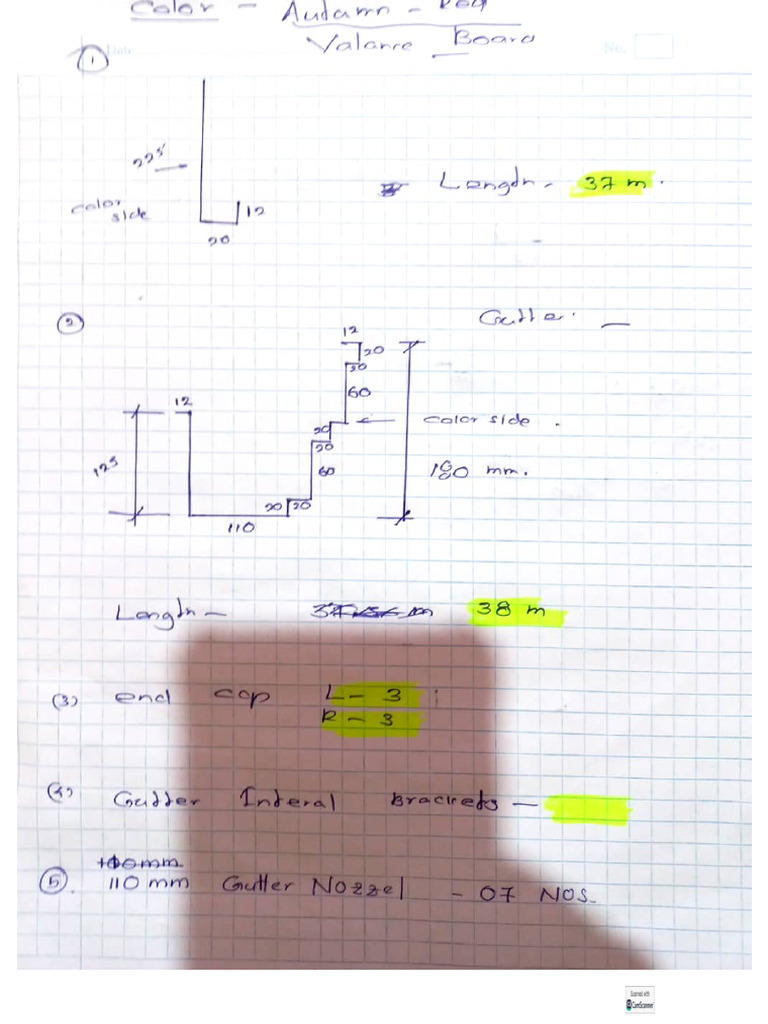 Color - Autamn - Red
Valance Board
1 Date No.
225
Length - 37 m.
color
side
12
20
2
Gutter. -
12
20
20
60
12
color side.
20
20
125
60
180 mm.
20 20
110
Length - 38 m
(3) end cap L - 3
R - 3
(4) Gutter Interal Brackets -
5. 110 mm Gutter Nozzel - 07 NOS.
Scanned with
CamScanner